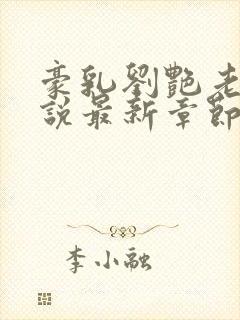 豪乳劉艷老
說最新章節
李小融